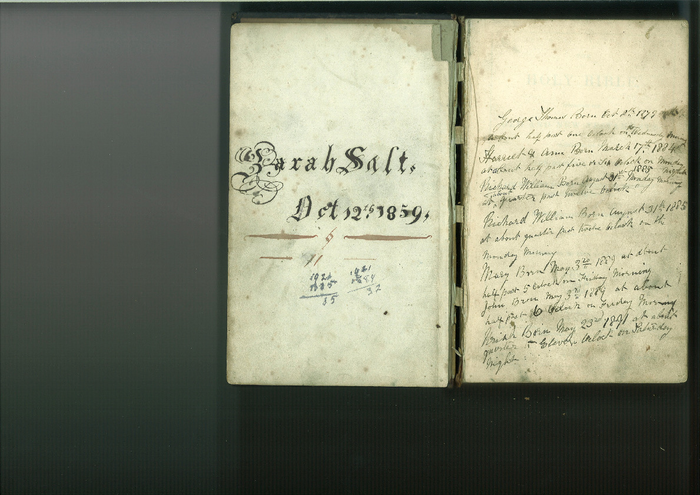 Sarah Salt.
Oct 12th 1859.
1921
1885
35
1921
1889
32
HOLY BIBLE
George Thomas Born Oct 8th 1879
about half past one oclock on Wednesday
Harriet Ann Born March 17th 1884
at about half past five oclock on Monday
Richard William Born August 31st 1885
at quarter past twelve oclock Monday morning
Richard William Born August 31st 1885
at about quarter past twelve oclock on the
Monday Morning
Mary Born May 3rd 1889 at about
half past 5 oclock on Friday Morning
John Born May 3rd 1889 at about
half past 6 oclock on Friday Morning
Born May 23rd 1891 at about
quarter Eleven oclock on Saturday
night